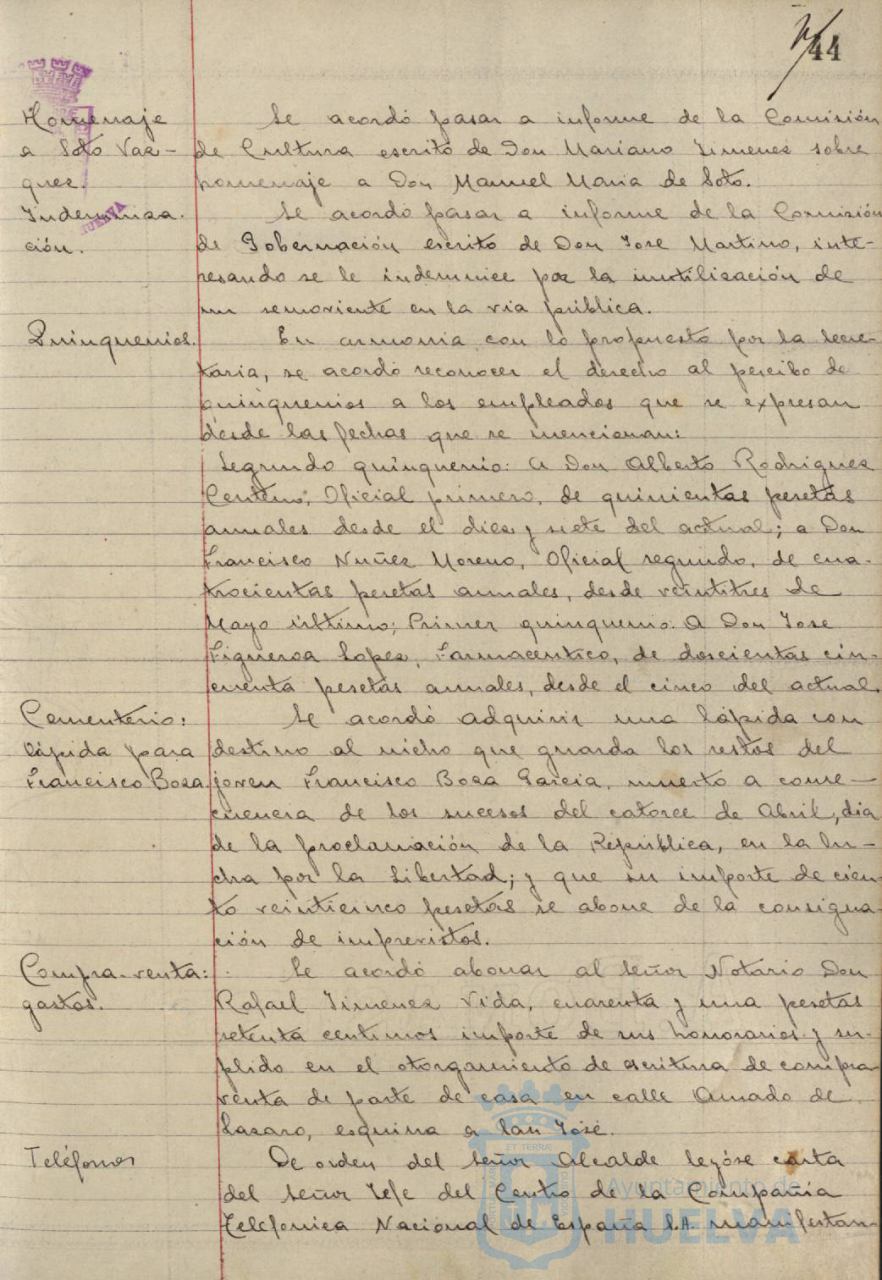 44
Homenaje
a Soto Vaz-
quez.
Se acordó pasar a informe de la Comisión
de Cultura escrito de Don Mariano Jimenez sobre
homenaje a Don Manuel Maria de Soto.
Indemniza-
ción.
Se acordó pasar a informe de la Comisión
de Gobernación escrito de Don Jose Martino, inte-
resando se le indemnice por la inutilización de
un semoviente en la via pública.
Quinquenios.
En armonia con lo propuesto por la Secre-
taria, se acordó reconocer el derecho al percibo de
quinquenios a los empleados que se expresan
desde las fechas que se mencionan:
Segundo quinquenio: a Don Alberto Rodriguez
Centeno, Oficial primero, de quinientas pesetas
anuales desde el diez y siete del actual; a Don
Francisco Nuñez Moreno, Oficial segundo, de cua-
trocientas pesetas anuales, desde veintitres de
Mayo último; Primer quinquenio. A Don Jose
Figueroa Lopez, Farmaceutico, de doscientas cin-
cuenta pesetas anuales, desde el cinco del actual.
Cementerio:
lápida para
Francisco Boza.
Se acordó adquirir una lápida con
destino al nicho que guarda los restos del
joven Francisco Boza Garcia, muerto a conse-
cuencia de los sucesos del catorce de Abril, dia
de la proclamación de la República, en la lu-
cha por la Libertad; y que su importe de cien-
to veinticinco pesetas se abone de la consigna-
ción de imprevistos.
Compra-venta:
gastos.
Se acordó abonar al Señor Notario Don
Rafael Jimenez Vida, cuarenta y una pesetas
setenta centimos importe de sus honorarios y su-
plido en el otorgamiento de escritura de compra
venta de parte de casa en calle Amado de
Lazaro, esquina a San José.
Teléfonos
De orden del Señor Alcalde leyóse carta
del Señor Jefe del Centro de la Compañia
Telefonica Nacional de España S.A. manifestan-
Ayuntamiento de
HUELVA